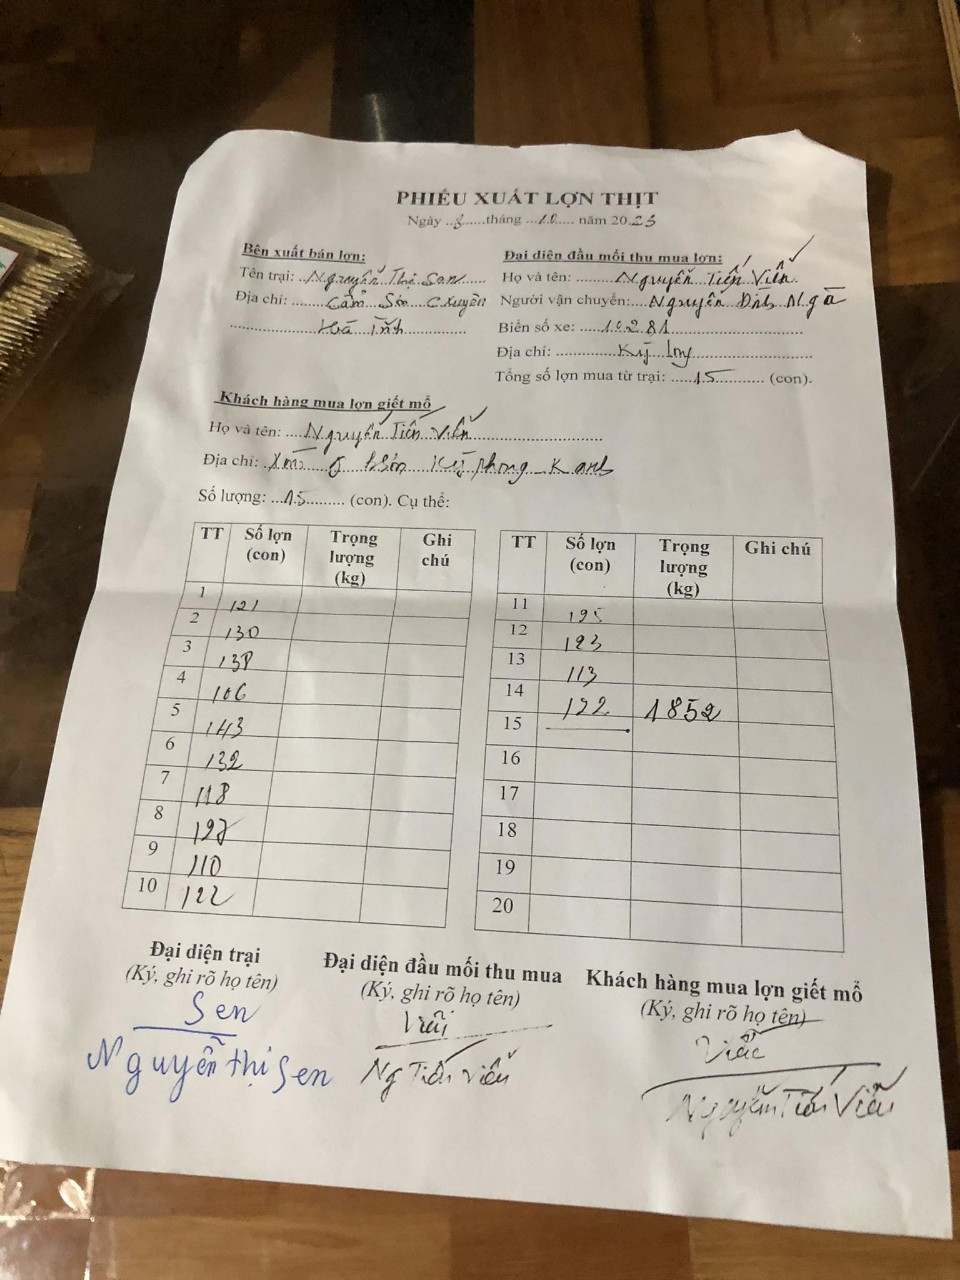 PHIẾU XUẤT LỢN THỊT
Ngày ..8......tháng ...10..... năm 2023
Bên xuất bán lợn:
Tên trại: ..Nguyễn Thị Sen
Địa chỉ: Cẩm Sơn C Xuyên
Hà Tĩnh
Đại diện đầu mối thu mua lợn:
Họ và tên: Nguyễn Tiến Viễn
Người vận chuyển: Nguyễn Đình Ngà
Biển số xe: 10281
Địa chỉ: Kỳ
Tổng số lợn mua từ trại: ....15.......... (con).
Khách hàng mua lợn giết mổ
Họ và tên: ...Nguyễn Tiến Viễn
Địa chỉ: Kỳ phong K anh
Số lượng: ...15.......... (con). Cụ thể:
TT Số lợn (con) Trọng lượng (kg) Ghi chú
1 121
2 130
3 138
4 106
5 143
6 132
7 118
8
9 110
10 122
TT Số lợn (con) Trọng lượng (kg) Ghi chú
11 125
12 123
13 113
14 122 1852
15
16
17
18
19
20
Đại diện trại
(Ký, ghi rõ họ tên)
Sen
Nguyễn thị Sen
Đại diện đầu mối thu mua
(Ký, ghi rõ họ tên)
Ng Tiến Viễn
Khách hàng mua lợn giết mổ
(Ký, ghi rõ họ tên)
Nguyễn Tiến Viễn